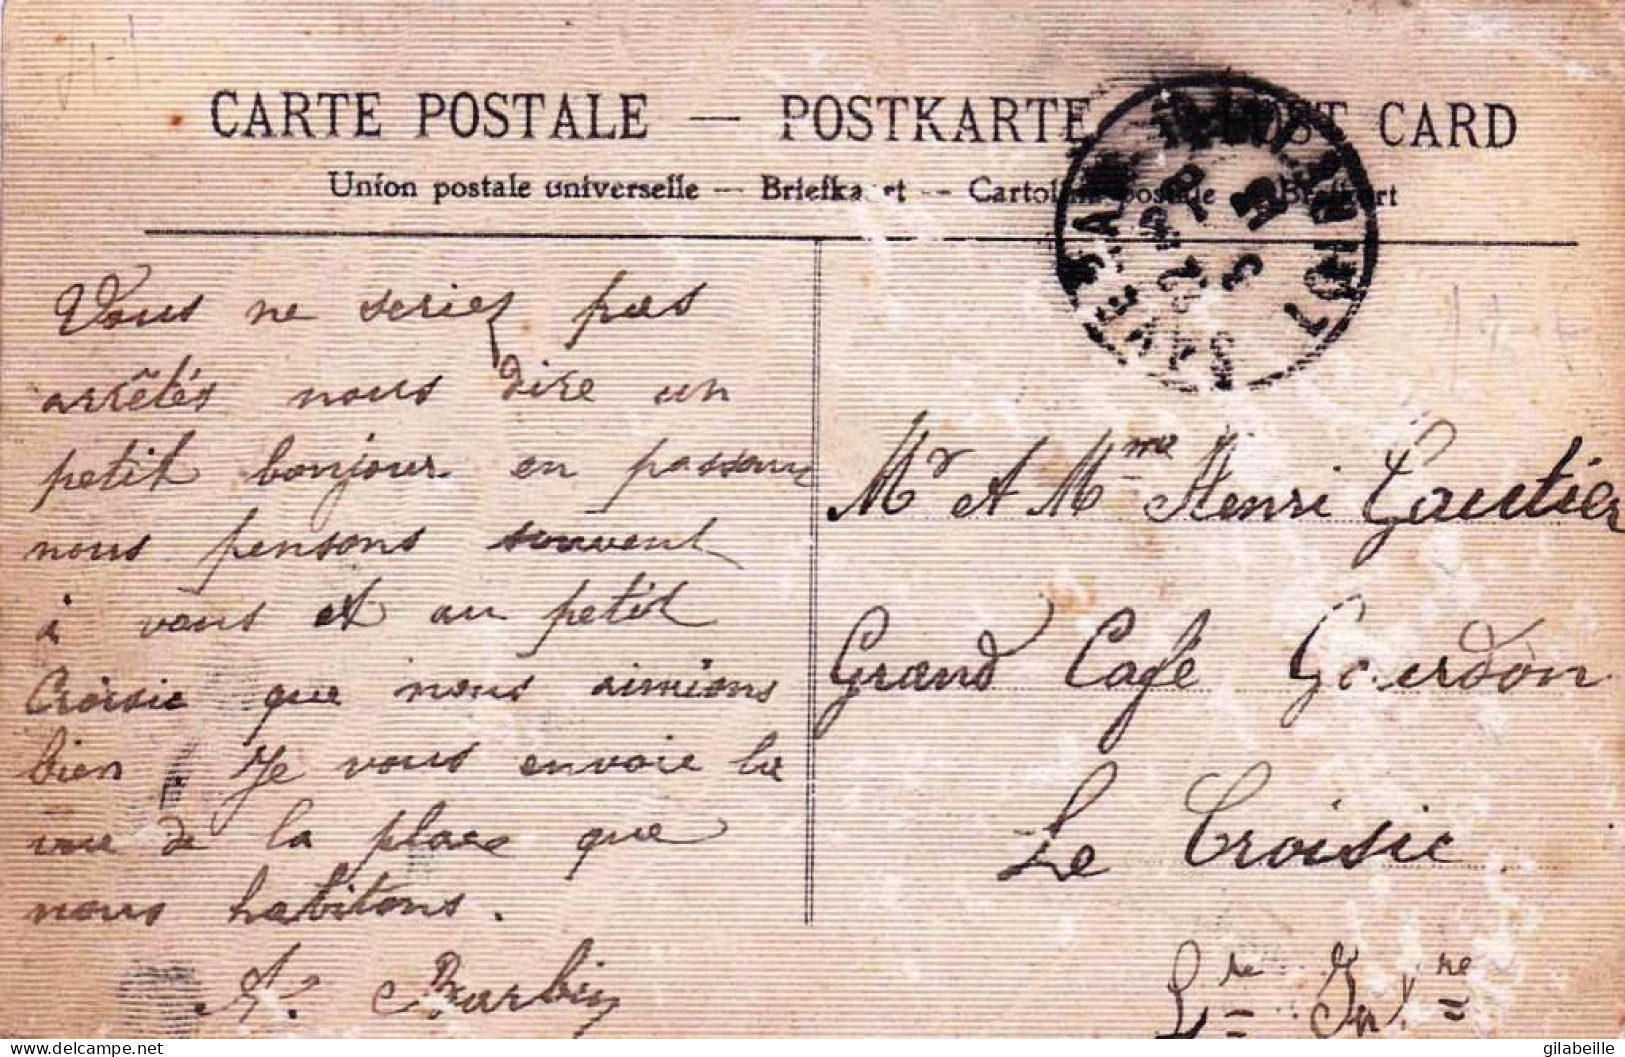 CARTE POSTALE — POSTKARTE — POST CARD
Union postale universelle — Briefkaart — Cartolina postale — Brefkort
SAVENAY
LOIRE INF
Vous ne seriez pas
arrêtés nous dire un
petit bonjour en passant
nous pensons souvent
à vous et au petit
Croisic que nous aimions
bien. Je vous envoie la
vue de la place que
nous habitons.
A. Barbin
Mr et Mme Henri Gautier
Grand Café Gourdon
Le Croisic
Lre Infre
delcampe.net
gilabeille